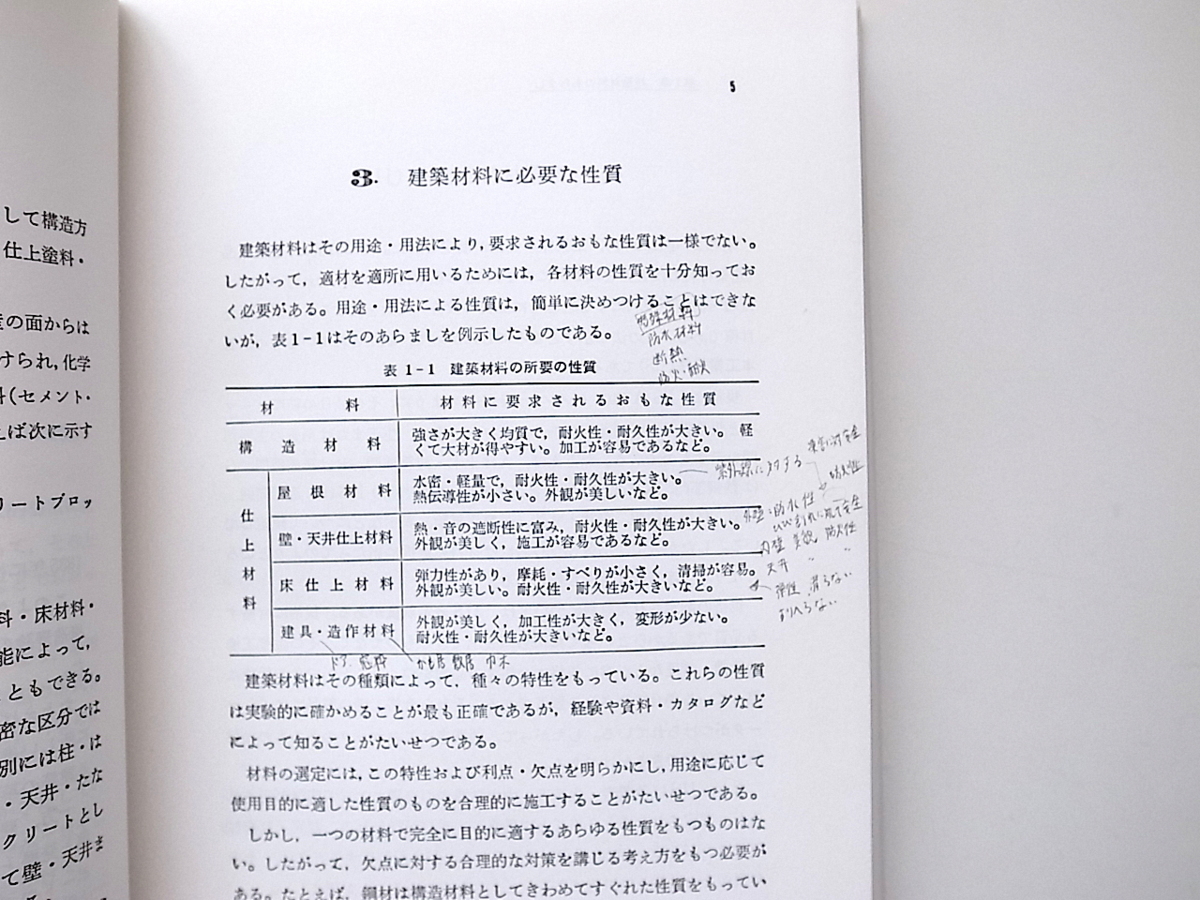 して構造方
仕上塗料・
産の面からは
けられ，化学
料(セメント・
えば次に示す
リートブロッ
料・床材料・
能によって，
ともできる。
密な区分では
別には柱・は
・天井・たな
クリートとし
て壁・天井ま
5
3. 建築材料に必要な性質
建築材料はその用途・用法により，要求されるおもな性質は一様でない。
したがって，適材を適所に用いるためには，各材料の性質を十分知ってお
く必要がある。用途・用法による性質は，簡単に決めつけることはできな
いが，表1-1はそのあらましを例示したものである。
特殊材料
防水材料
断熱
防火・耐火
表 1-1 建築材料の所要の性質
材料 材料に要求されるおもな性質
構造材料 強さが大きく均質で，耐火性・耐久性が大きい。 軽
くて大材が得やすい。加工が容易であるなど。
仕上材料
屋根材料 水密・軽量で，耐火性・耐久性が大きい。
熱伝導性が小さい。外観が美しいなど。
壁・天井仕上材料 熱・音の遮断性に富み，耐火性・耐久性が大きい。
外観が美しく，施工が容易であるなど。
床仕上材料 弾力性があり，摩耗・すべりが小さく，清掃が容易。
外観が美しい。耐火性・耐久性が大きいなど。
建具・造作材料 外観が美しく，加工性が大きく，変形が少ない。
耐火性・耐久性が大きいなど。
紫外線に対する
防火性
外壁・防水性
内壁 美観 防火性
天井 〃 〃
弾性 滑らない
すりへらない
ドア 窓枠
かも居 敷居 巾木
建築材料はその種類によって，種々の特性をもっている。これらの性質
は実験的に確かめることが最も正確であるが，経験や資料・カタログなど
によって知ることがたいせつである。
材料の選定には，この特性および利点・欠点を明らかにし，用途に応じて
使用目的に適した性質のものを合理的に施工することがたいせつである。
しかし，一つの材料で完全に目的に適するあらゆる性質をもつものはな
い。したがって，欠点に対する合理的な対策を講じる考え方をもつ必要が
ある。たとえば，鋼材は構造材料としてきわめてすぐれた性質をもってい